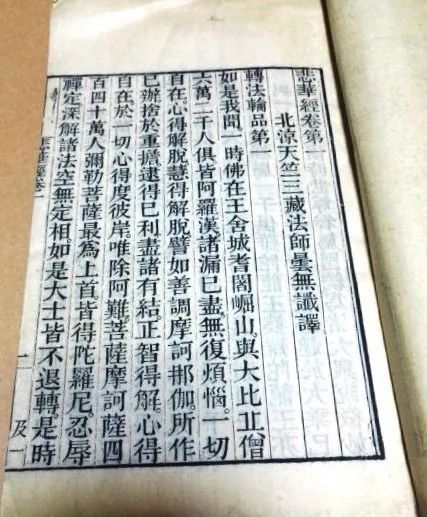 悲華經卷第
北涼天竺三藏法師曇無讖譯
轉法輪品第一
如是我聞一時佛在王舍城耆闍崛山。與大比丘僧
六萬二千人俱皆阿羅漢諸漏已盡。無復煩惱。一切
自在。心得解脫慧得解脫譬如善調摩訶那伽。所作
已辦捨於重擔逮得己利盡諸有結正智得解。心得
自在於一切心得度彼岸。唯除阿難菩薩摩訶薩四
百四十萬人彌勒菩薩最為上首皆得陀羅尼。忍辱
禪定深解諸法空無定相。如是大士皆不退轉是時
悲華經卷一
一
及一